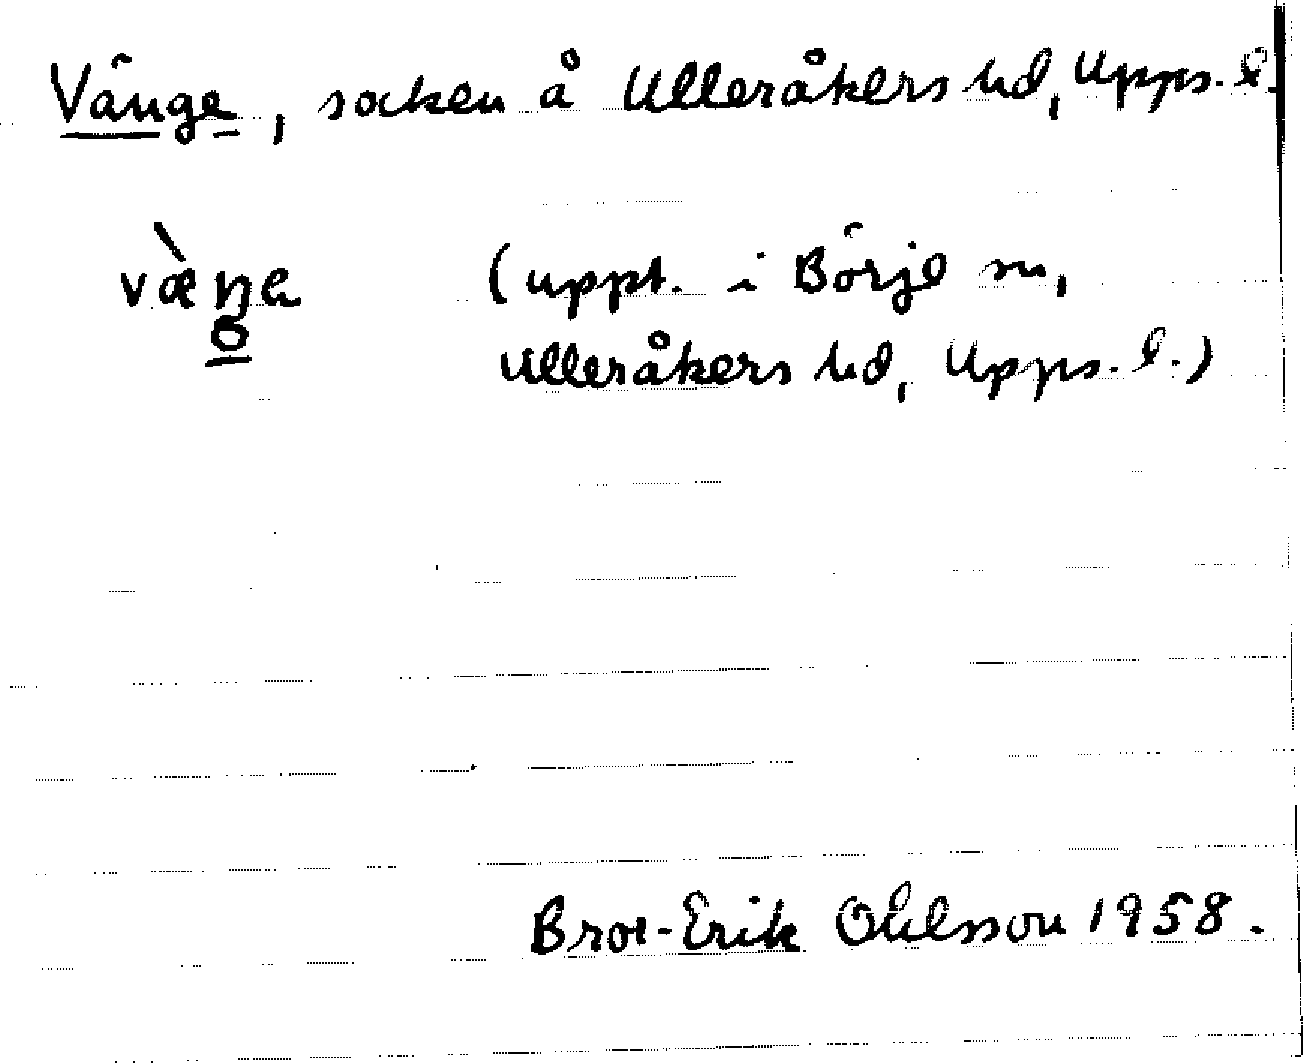 Vänge, socken å Ulleråkers hd, Upps. l.
(uppt. i Börje sn,
Ulleråkers hd, Upps. l.)
Bror-Erik Ohlsson 1958.